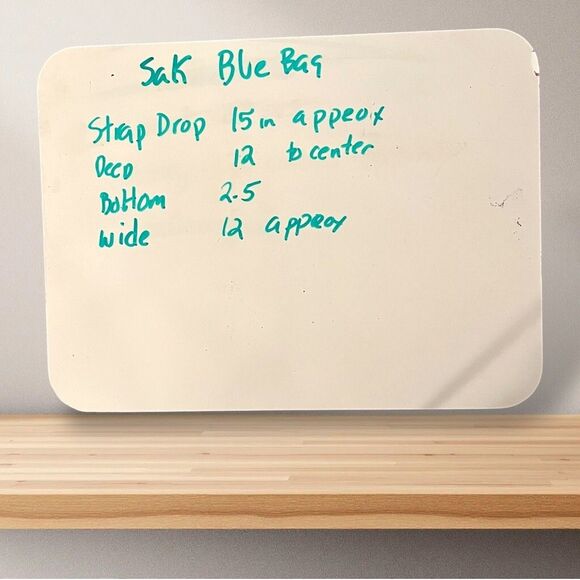 Sak Blue Bag
Strap Drop 15 in appeox
Deep 12 to center
Bottom 2.5
wide 12 appeox